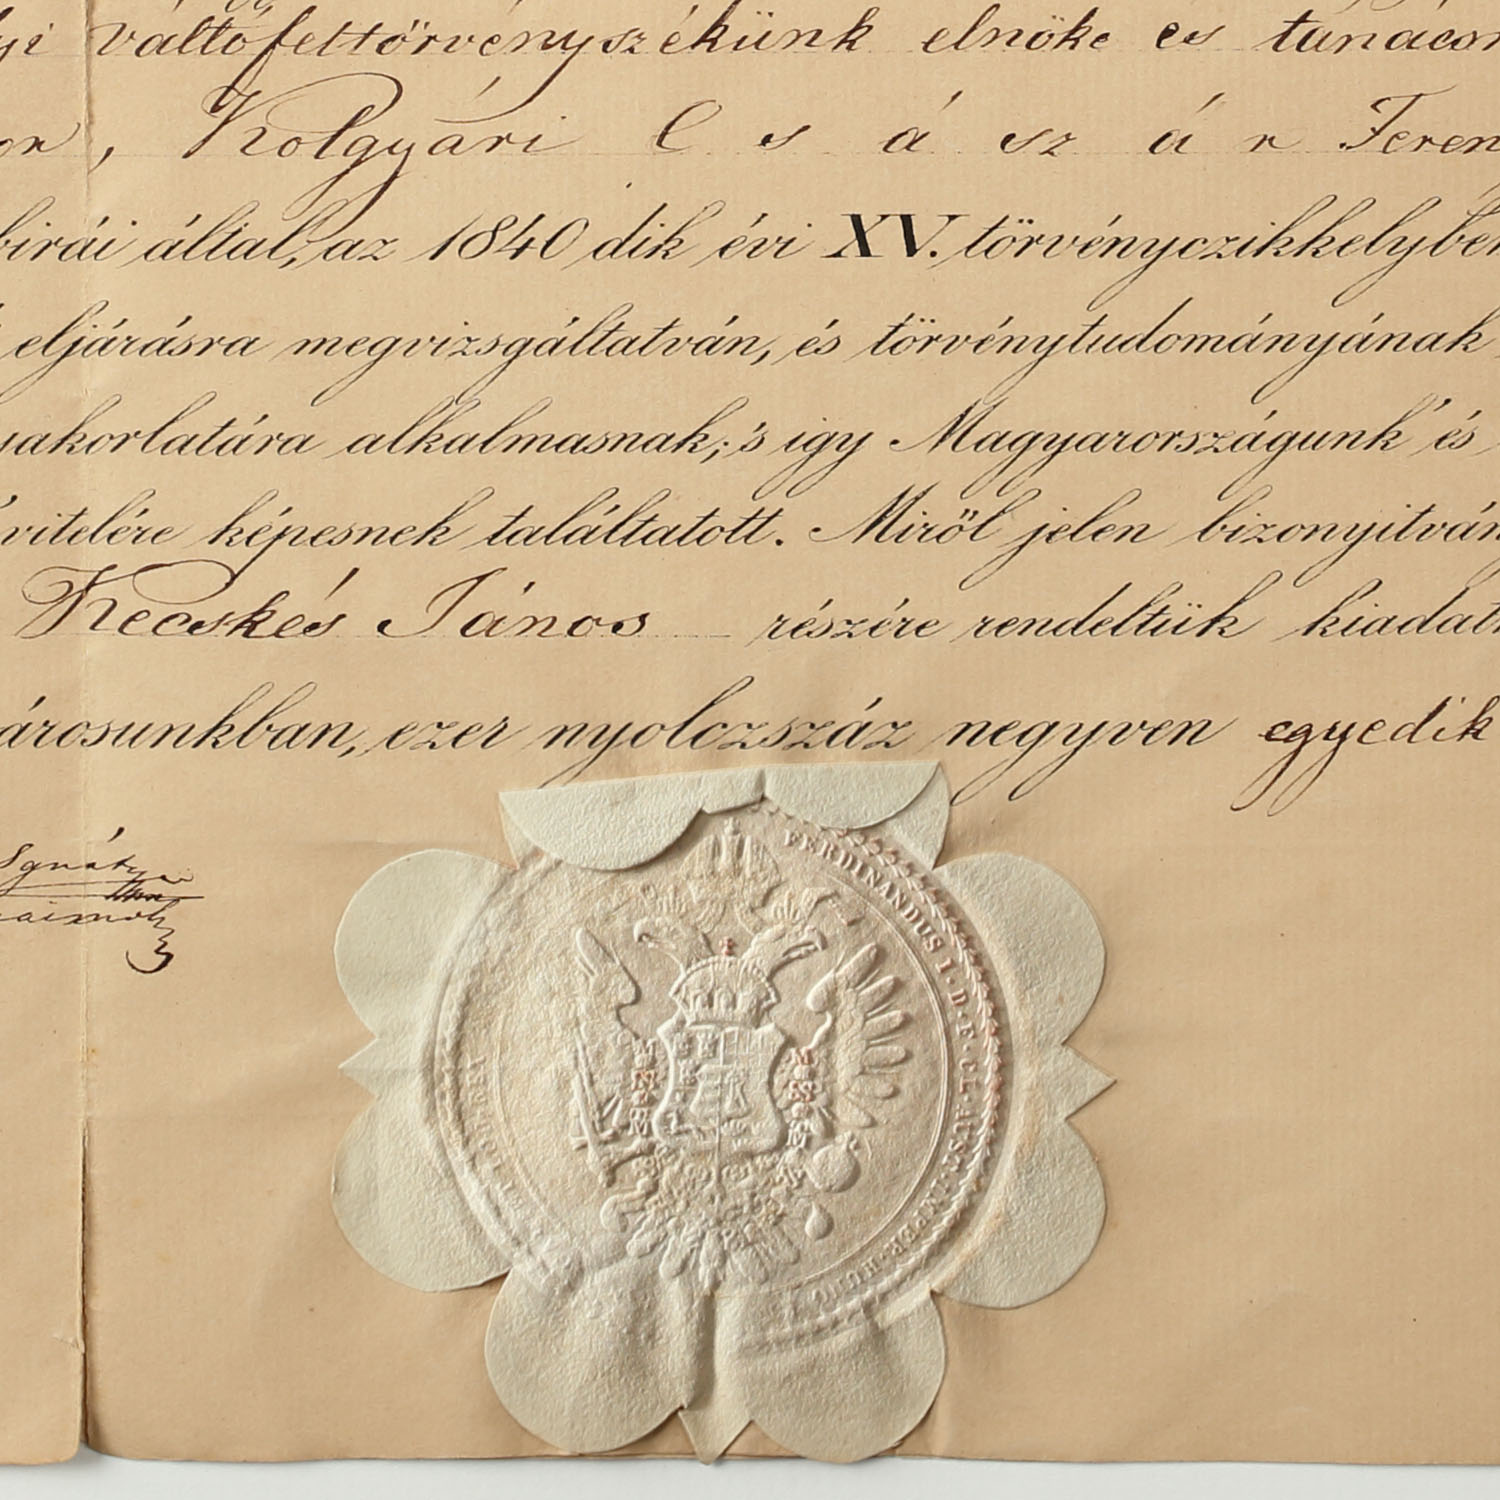 váltófeltörvényszékünk elnöke és
Kolgyári C s á sz á r Feren
birái által, az 1840 dik évi XV. törvényczikkelyben
eljárásra megvizsgáltatván, és törvénytudományának
yakorlatára alkalmasnak; 's igy Magyarországunk' és
vitelére képesnek találtatott. Miröl jelen bizonyitván
Kecskés János részére rendeltük kiadat
árosunkban, ezer nyolczszáz negyven egyedik
Ignátz
FERDINANDUS I. D. F. CL. AUST. IMPER. HUNG